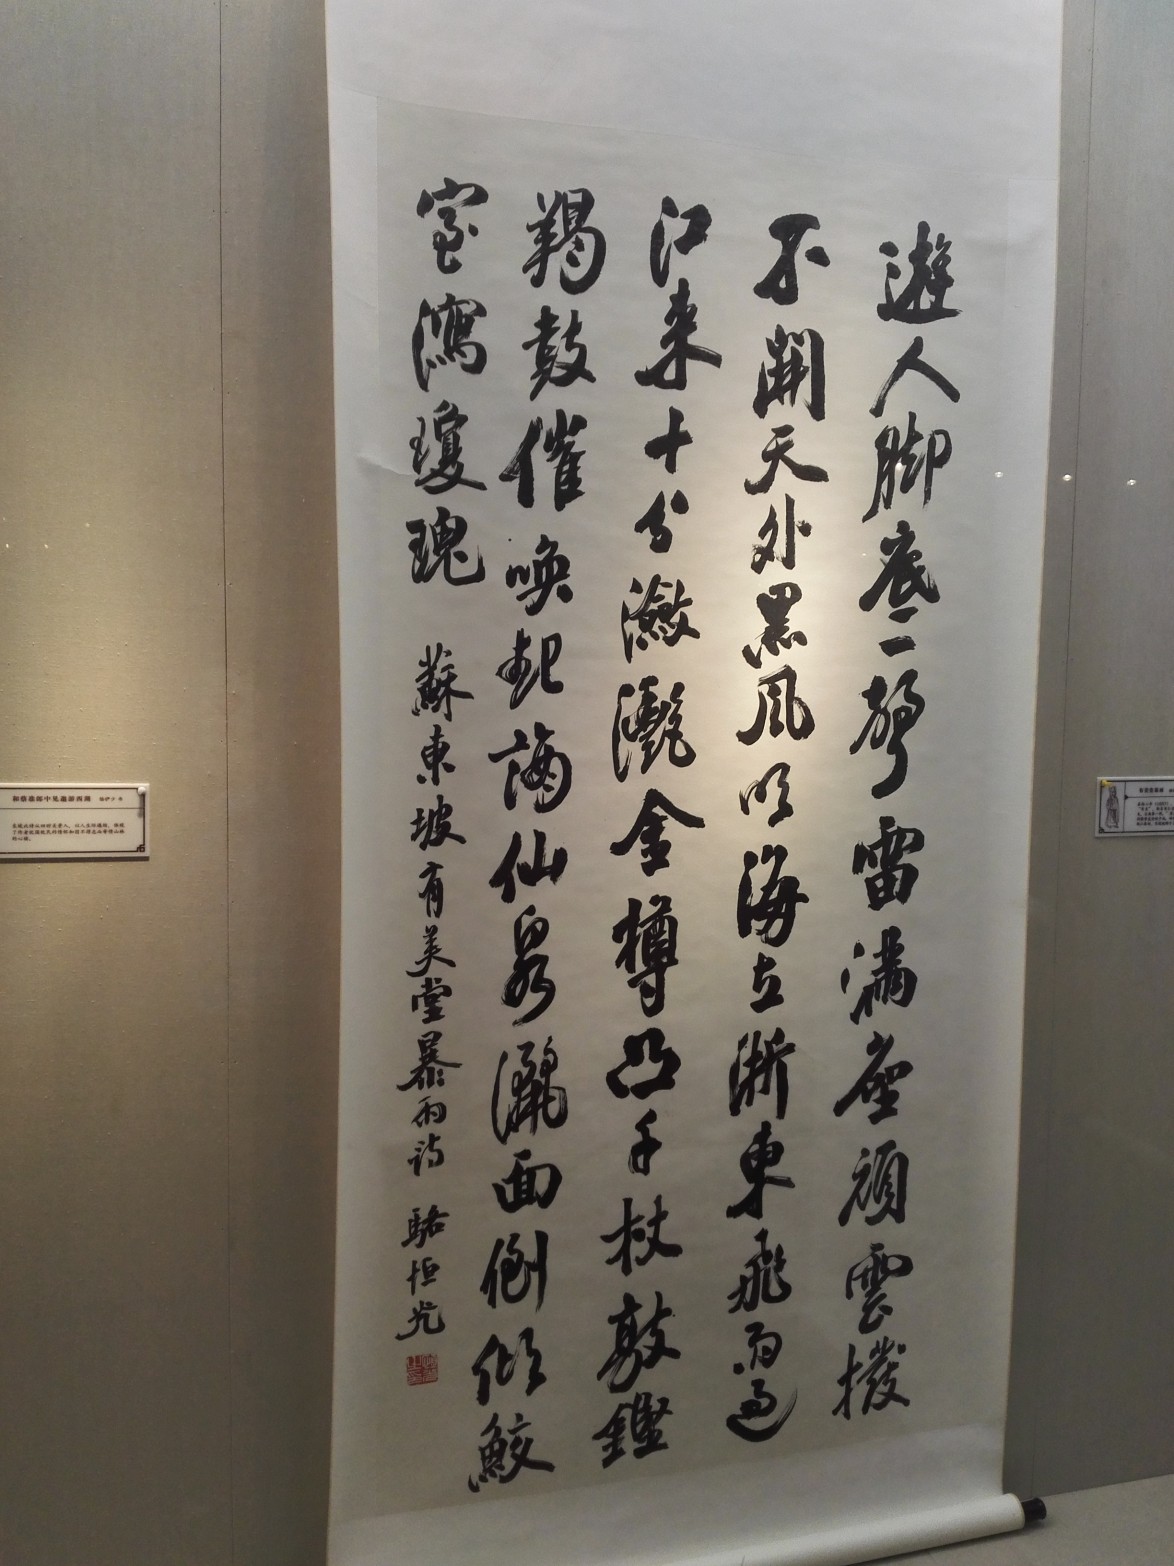 遊人脚底一聲雷滿座頑雲撥
不開天外黑風吹海立浙東飛雨過
江来十分瀲灩金樽凸千杖敲鏗
羯鼓催喚起謫仙泉灑面倒傾鮫
室瀉瓊瑰 蘇東坡有美堂暴雨詩 駱恒光
和蔡准郎中见邀游西湖